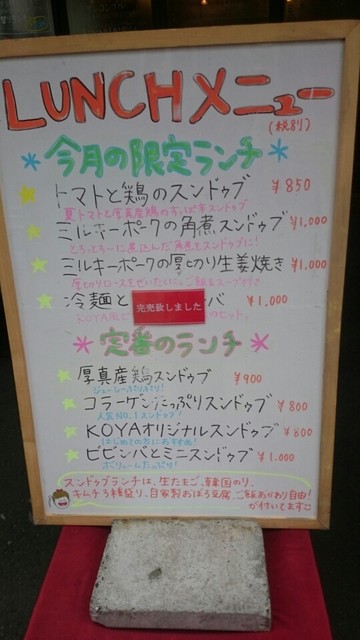 LUNCHメニュー
(税別)
今月の限定ランチ
トマトと鶏のスンドゥブ ¥850
夏トマトと厚真産鶏のすっぱ辛スンドゥブ
ミルキーポークの角煮スンドゥブ ¥1,000
とろっとろーに煮込んだ角煮をスンドゥブに!
ミルキーポークの厚切り生姜焼き ¥1,000
厚切りロースをぜいたくに。ご飯&スープ付き
冷麺と バ ¥1,000
完売致しました
KOYA のセット。
定番のランチ
厚真産鶏スンドゥブ ¥900
ジューシーぷりぷり!
コラーゲンたっぷりスンドゥブ ¥800
人気NO.1スンドゥブ!
KOYAオリジナルスンドゥブ ¥800
はじめての方におすすめ!
ビビンバとミニスンドゥブ ¥1,000
ボリュームたっぷり!
スンドゥブランチは、生たまご、韓国のり、
キムチ3種盛り、自家製おぼろ豆腐、ご飯おかわり自由!
が付いてます